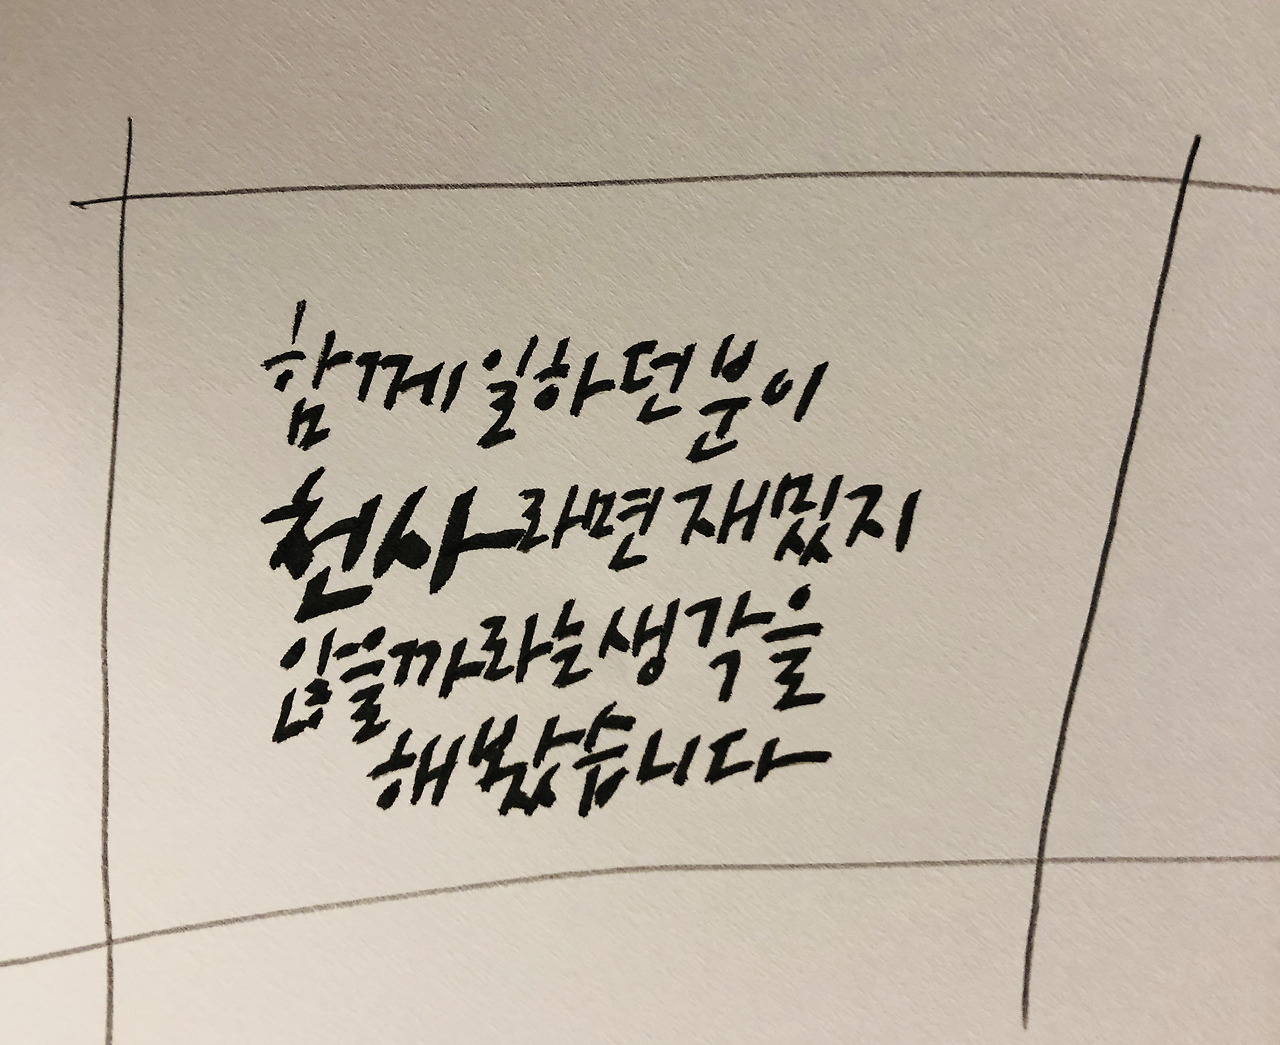 함께 일하던 분이
천사라면 재밌지
않을까라는 생각을
해봤습니다